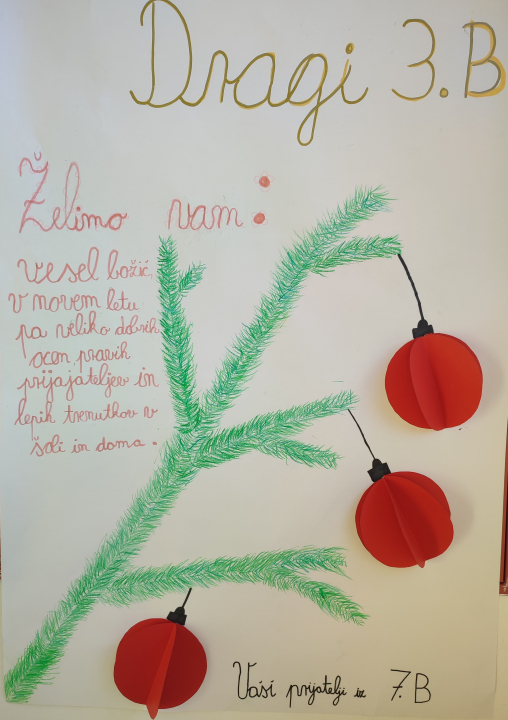 Dragi 3. B
Želimo vam:
vesel božič,
v novem letu
pa veliko dobrih
ocen, pravih
prijajateljev in
lepih trenutkov v
šoli in doma.
Vaši prijatelji iz 7. B